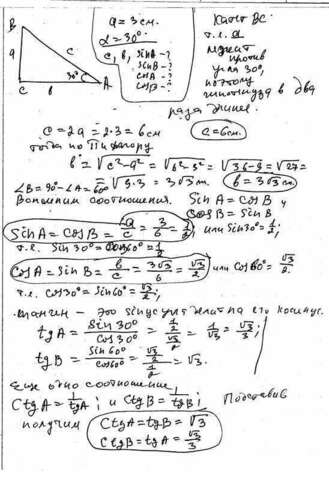 B
a
c
30°
C
b
A
a = 3 см.
α = 30°
c, b, sin B - ?
sin A - ?
cos A - ?
cos B - ?
Катет BC.
т.к. a
лежит
против
угла 30°,
поэтому
гипотенуза в два
раза длиннее.
c = 2a = 2·3 = 6 см
c = 6 см.
тогда по Пифагору
b = √c²-a² = √6²-3² = √36-9 = √27 =
= √9·3 = 3√3 см.
b = 3√3 см
∠B = 90° - ∠A = 60°
Вспомним соотношения.
Sin A = Cos B и
Cos B = Sin B
Sin A = Cos B = a/c = 3/6 = 1/2 или Sin 30° = 1/2;
т.к. Sin 30° = Cos 60° = 1/2
Cos A = Sin B = b/c = 3√3/6 = √3/2 или Cos 60° = √3/2.
т.к. Cos 30° = Sin 60° = √3/2;
Тангенс - это синус угла делит на его косинус.
tg A = Sin 30°/Cos 30° = 1/2/√3/2 = 1/√3 = √3/3;
tg B = Sin 60°/Cos 60° = √3/2/1/2 = √3.
Еще одно соотношение,
Ctg A = 1/tg A; и Ctg B = 1/tg B;
Подставив
получим
Ctg A = tg B = √3
Ctg B = tg A = √3/3